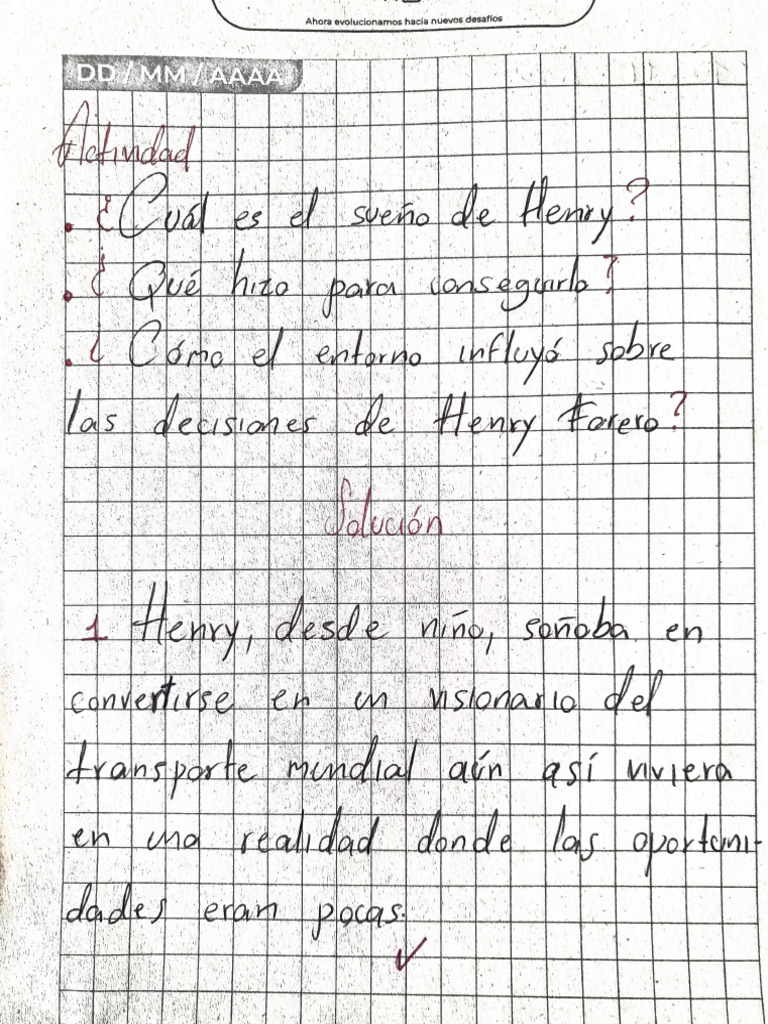 Ahora evolucionamos hacia nuevos desafíos
DD / MM / AAAA
Actividad
. ¿Cuál es el sueño de Henry?
. ¿Qué hizo para conseguirlo?
. ¿Cómo el entorno influyó sobre
las decisiones de Henry Forero?
Solución
1 Henry, desde niño, soñoba en
convertirse en un visionario del
transporte mundial aún así viviera
en una realidad donde las oportuni-
dades eran pocas.